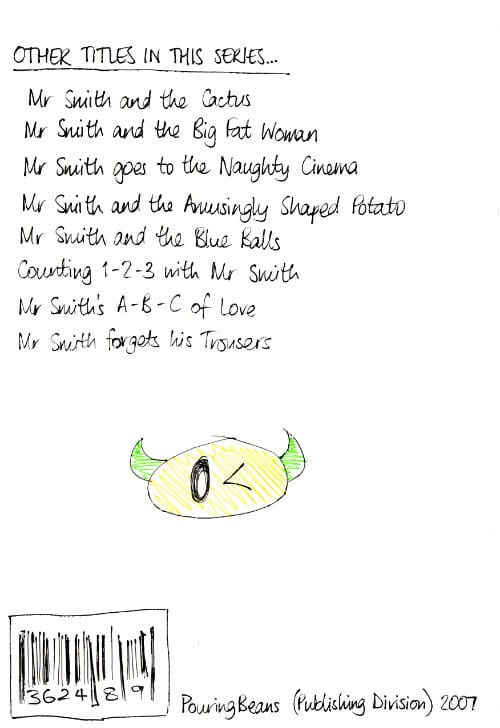 OTHER TITLES IN THIS SERIES...
Mr Smith and the Cactus
Mr Smith and the Big Fat Woman
Mr Smith goes to the Naughty Cinema
Mr Smith and the Amusingly Shaped Potato
Mr Smith and the Blue Balls
Counting 1-2-3 with Mr Smith
Mr Smith's A-B-C of Love
Mr Smith forgets his Trousers
3624189
PouringBeans (Publishing Division) 2007